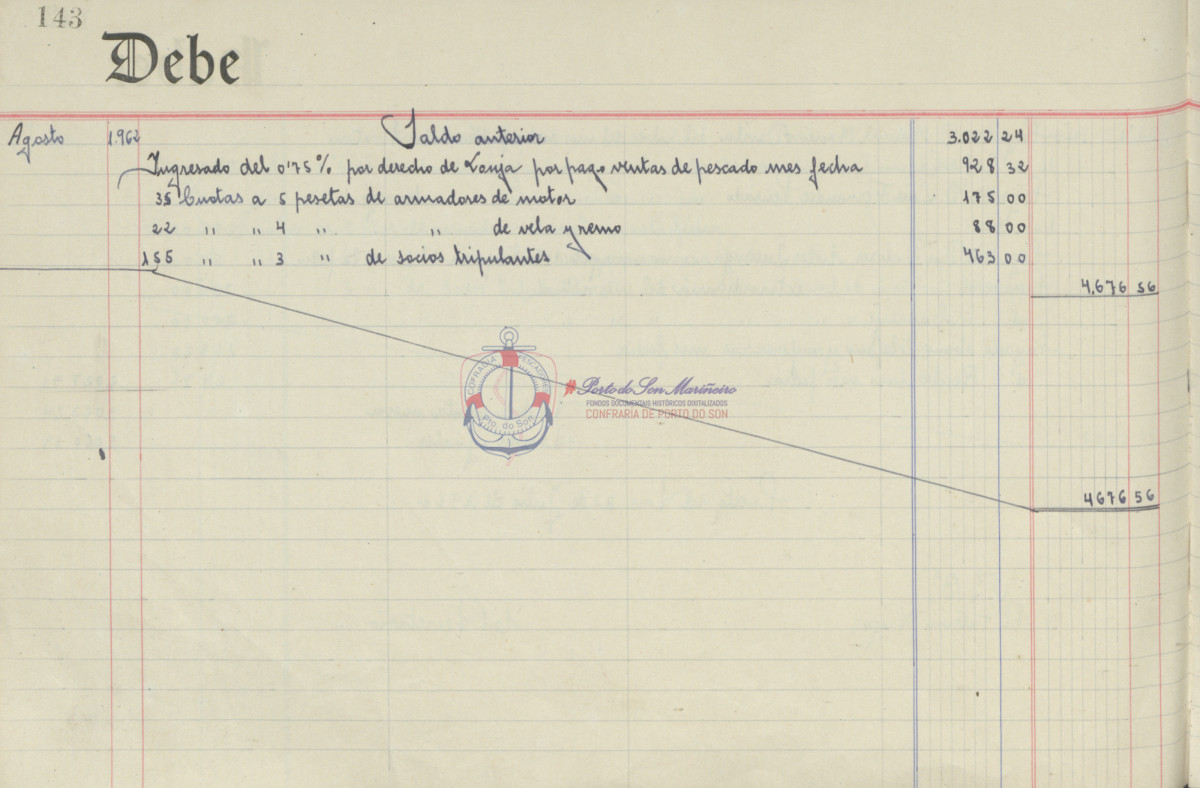 143
Debe
Agosto 1.962 Saldo anterior 3.022 24
Ingresado del 0'75% por derecho de Lonja por pago ventas de pescado mes fecha 928 32
35 Cuotas a 5 pesetas de armadores de motor 175 00
22 " " 4 " " de vela y remo 88 00
155 " " 3 " de socios tripulantes 463 00
4.676 56
COFRADIA PESCADORES
Pto. do Son
Porto do Son Mariñeiro
FONDOS DOCUMENTAIS HISTÓRICOS DIXITALIZADOS
CONFRARÍA DE PORTO DO SON
4676 56